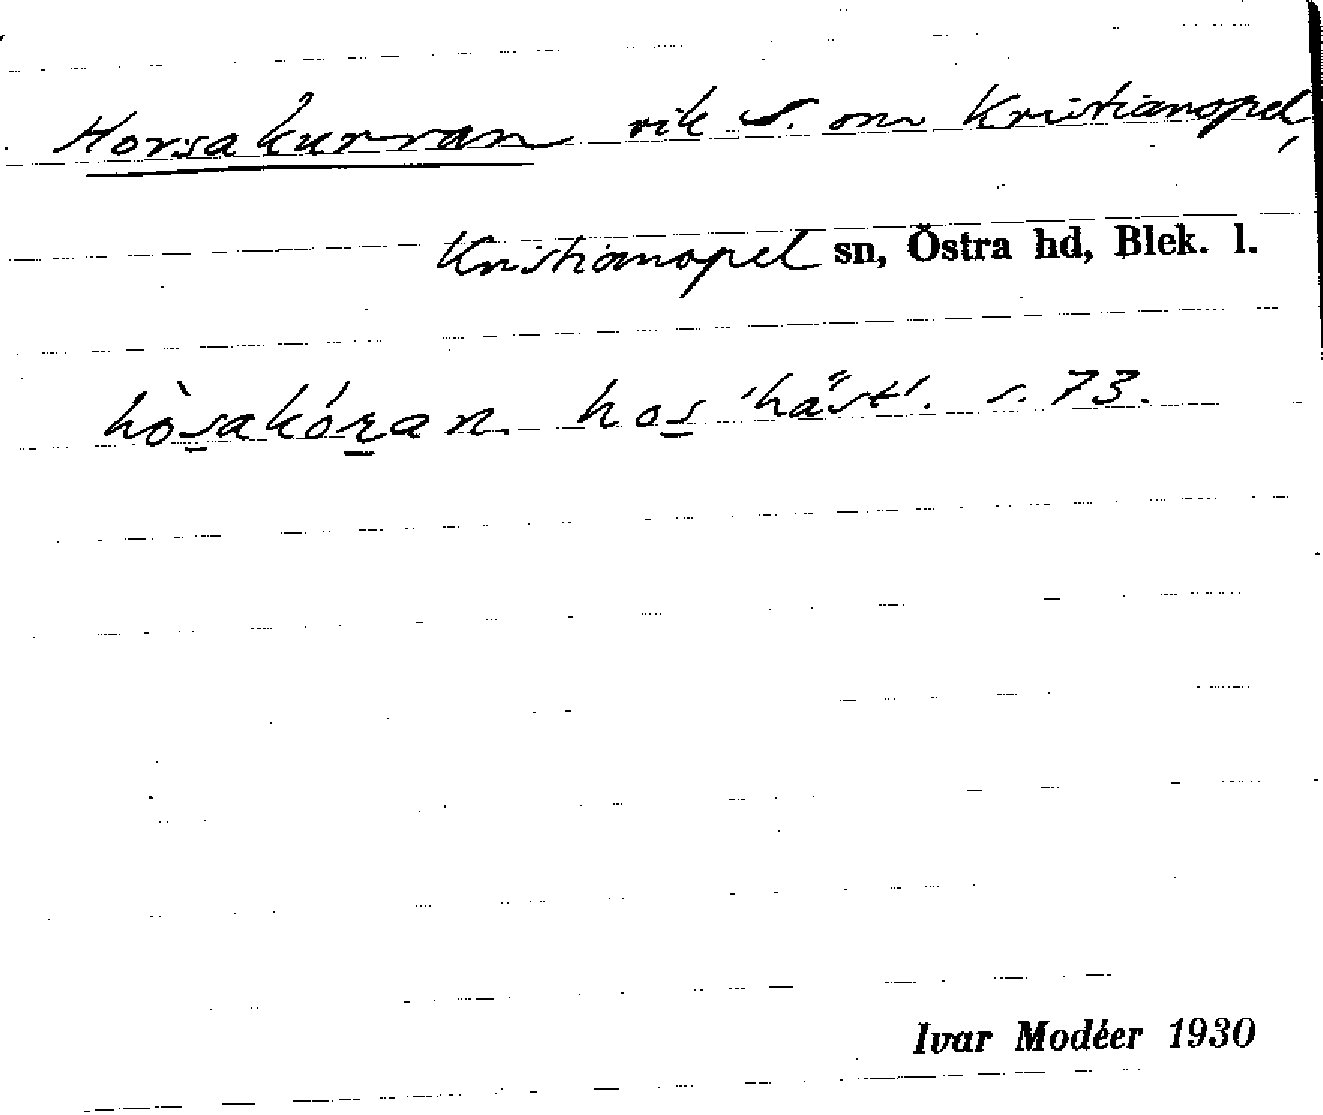 Horsakurran vik S. om Kristianopel,
Kristianopel sn, Östra hd, Blek. l.
hòs̲akór̲an. hos̲ 'häst'. s. 73.
Ivar Modéer 1930